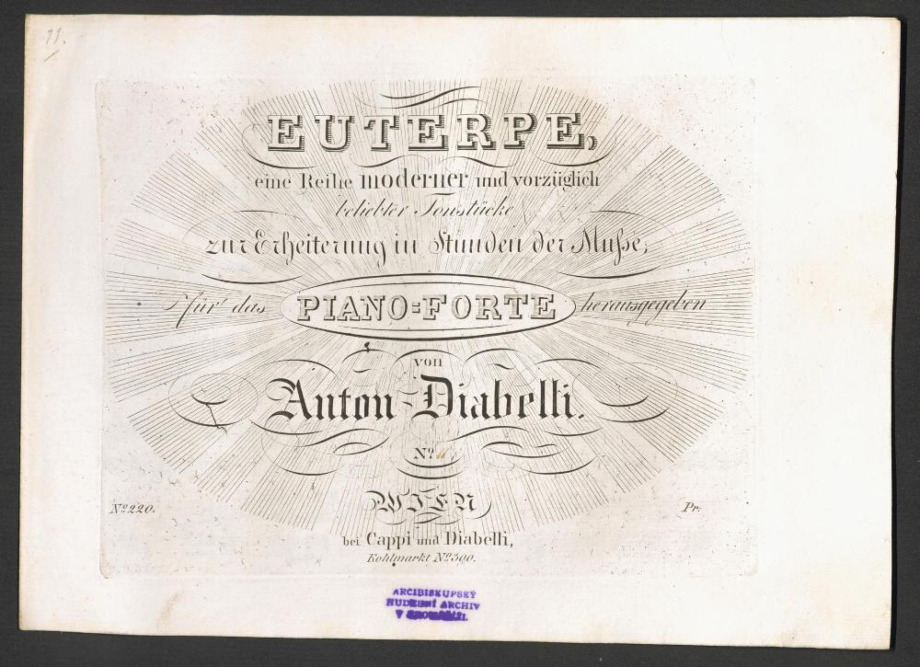 11.
EUTERPE,
eine Reihe moderner und vorzüglich
beliebter Tonstücke
zur Erheiterung in Stunden der Muſse,
für das PIANO=FORTE herausgegeben
von
Anton Diabelli.
Nº
WIEN
Nº 220. Pr.
bei Cappi und Diabelli,
Kohlmarkt Nº 300.
ARCIBISKUPSKÝ
HUDEBNÍ ARCHIV
V